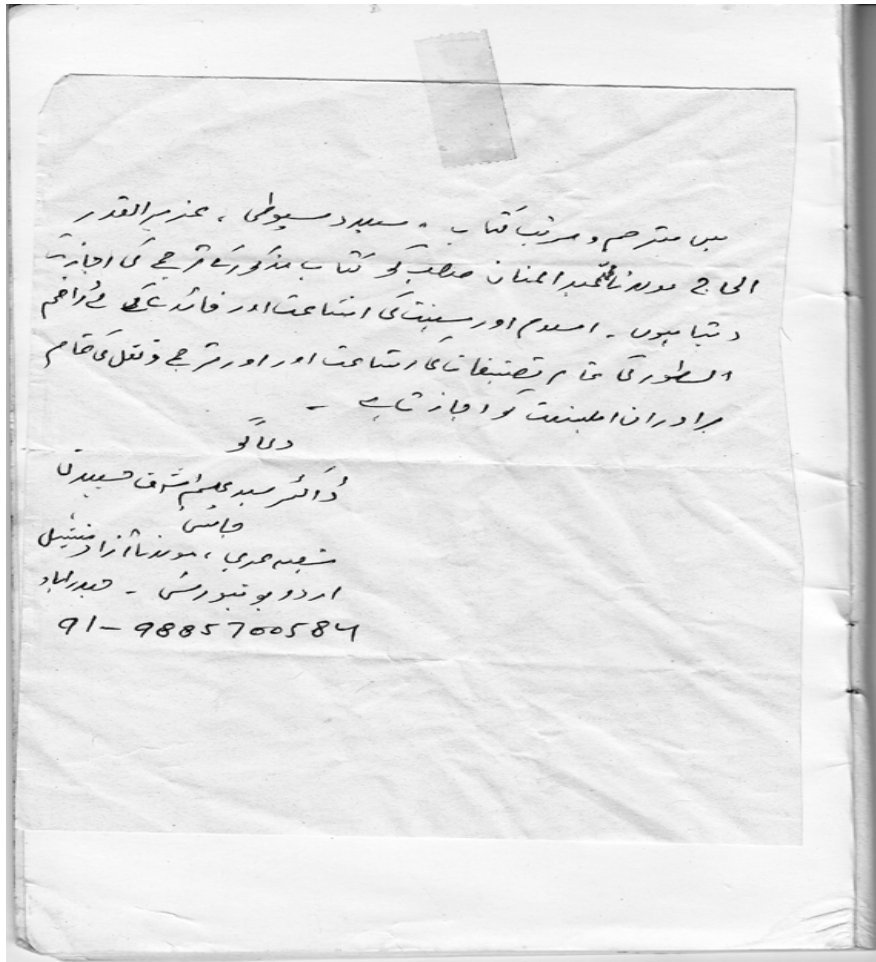 میں مترجم و مرتب کتاب ۔ میلاد سیوطی ، عزیز القدر
الحاج مولانا محمد عبد المنان صاحب کو کتاب مذکور کے ترجمے کی اجازت
دیتا ہوں ۔ اسلام اور سنیت کی اشاعت اور فائدے کے لئے راقم
السطور کی تمام تصنیفات کی اشاعت اور اور ترجمے و نقل کی تمام
برادران اہلسنت کو اجازت ہے ۔
دعا گو
ڈاکٹر سید علیم اشرف جیلانی
جائسی
شعبہ عربی ، مولانا آزاد نیشنل
اردو یونیورسٹی ۔ حیدرآباد
91-9885700584